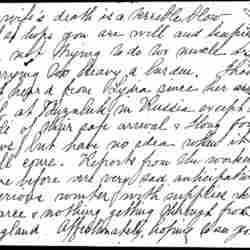 wife's death is a terrible blow
hope you are will and keeping
not trying to do too much or
carrying too heavy a burden. Th
heard from Myra since her as
l at Buzuluk in Russia except
of their safe arrival & long for
but have no idea when it
will come. Reports from the worker
re before were very sad anticipati
serious winter with supplies r
arce & nothing getting through from
gland. Affectionately, hoping to see you